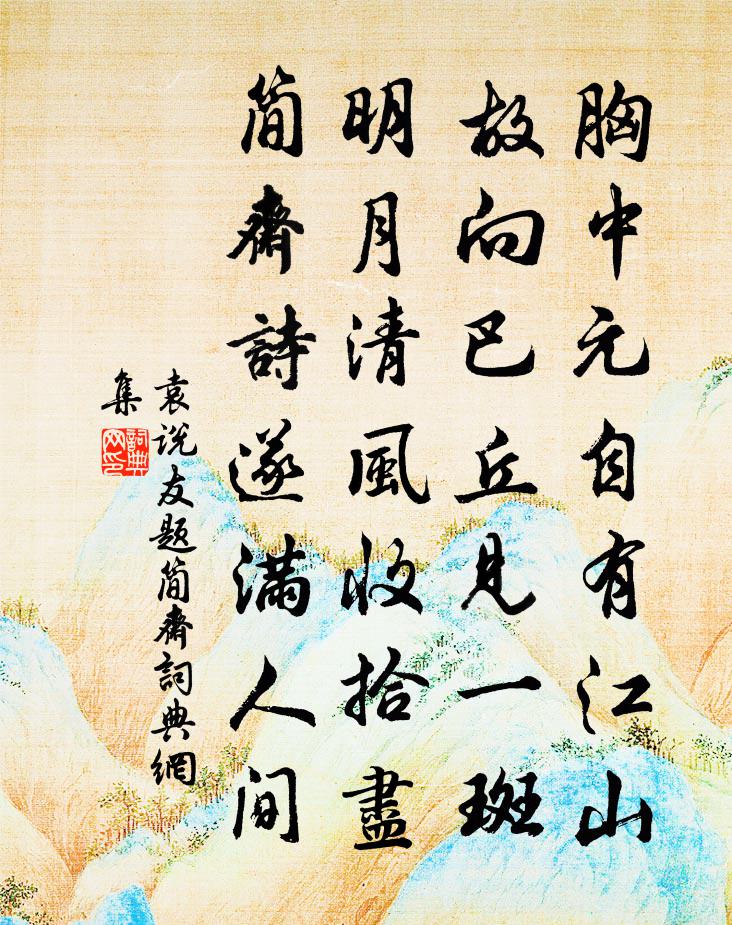 胸中元自有江山
故向巴丘見一斑
明月清風收拾盡
简齋詩遂滿人间
袁说友题简齋詞典網
集
詞典
网印